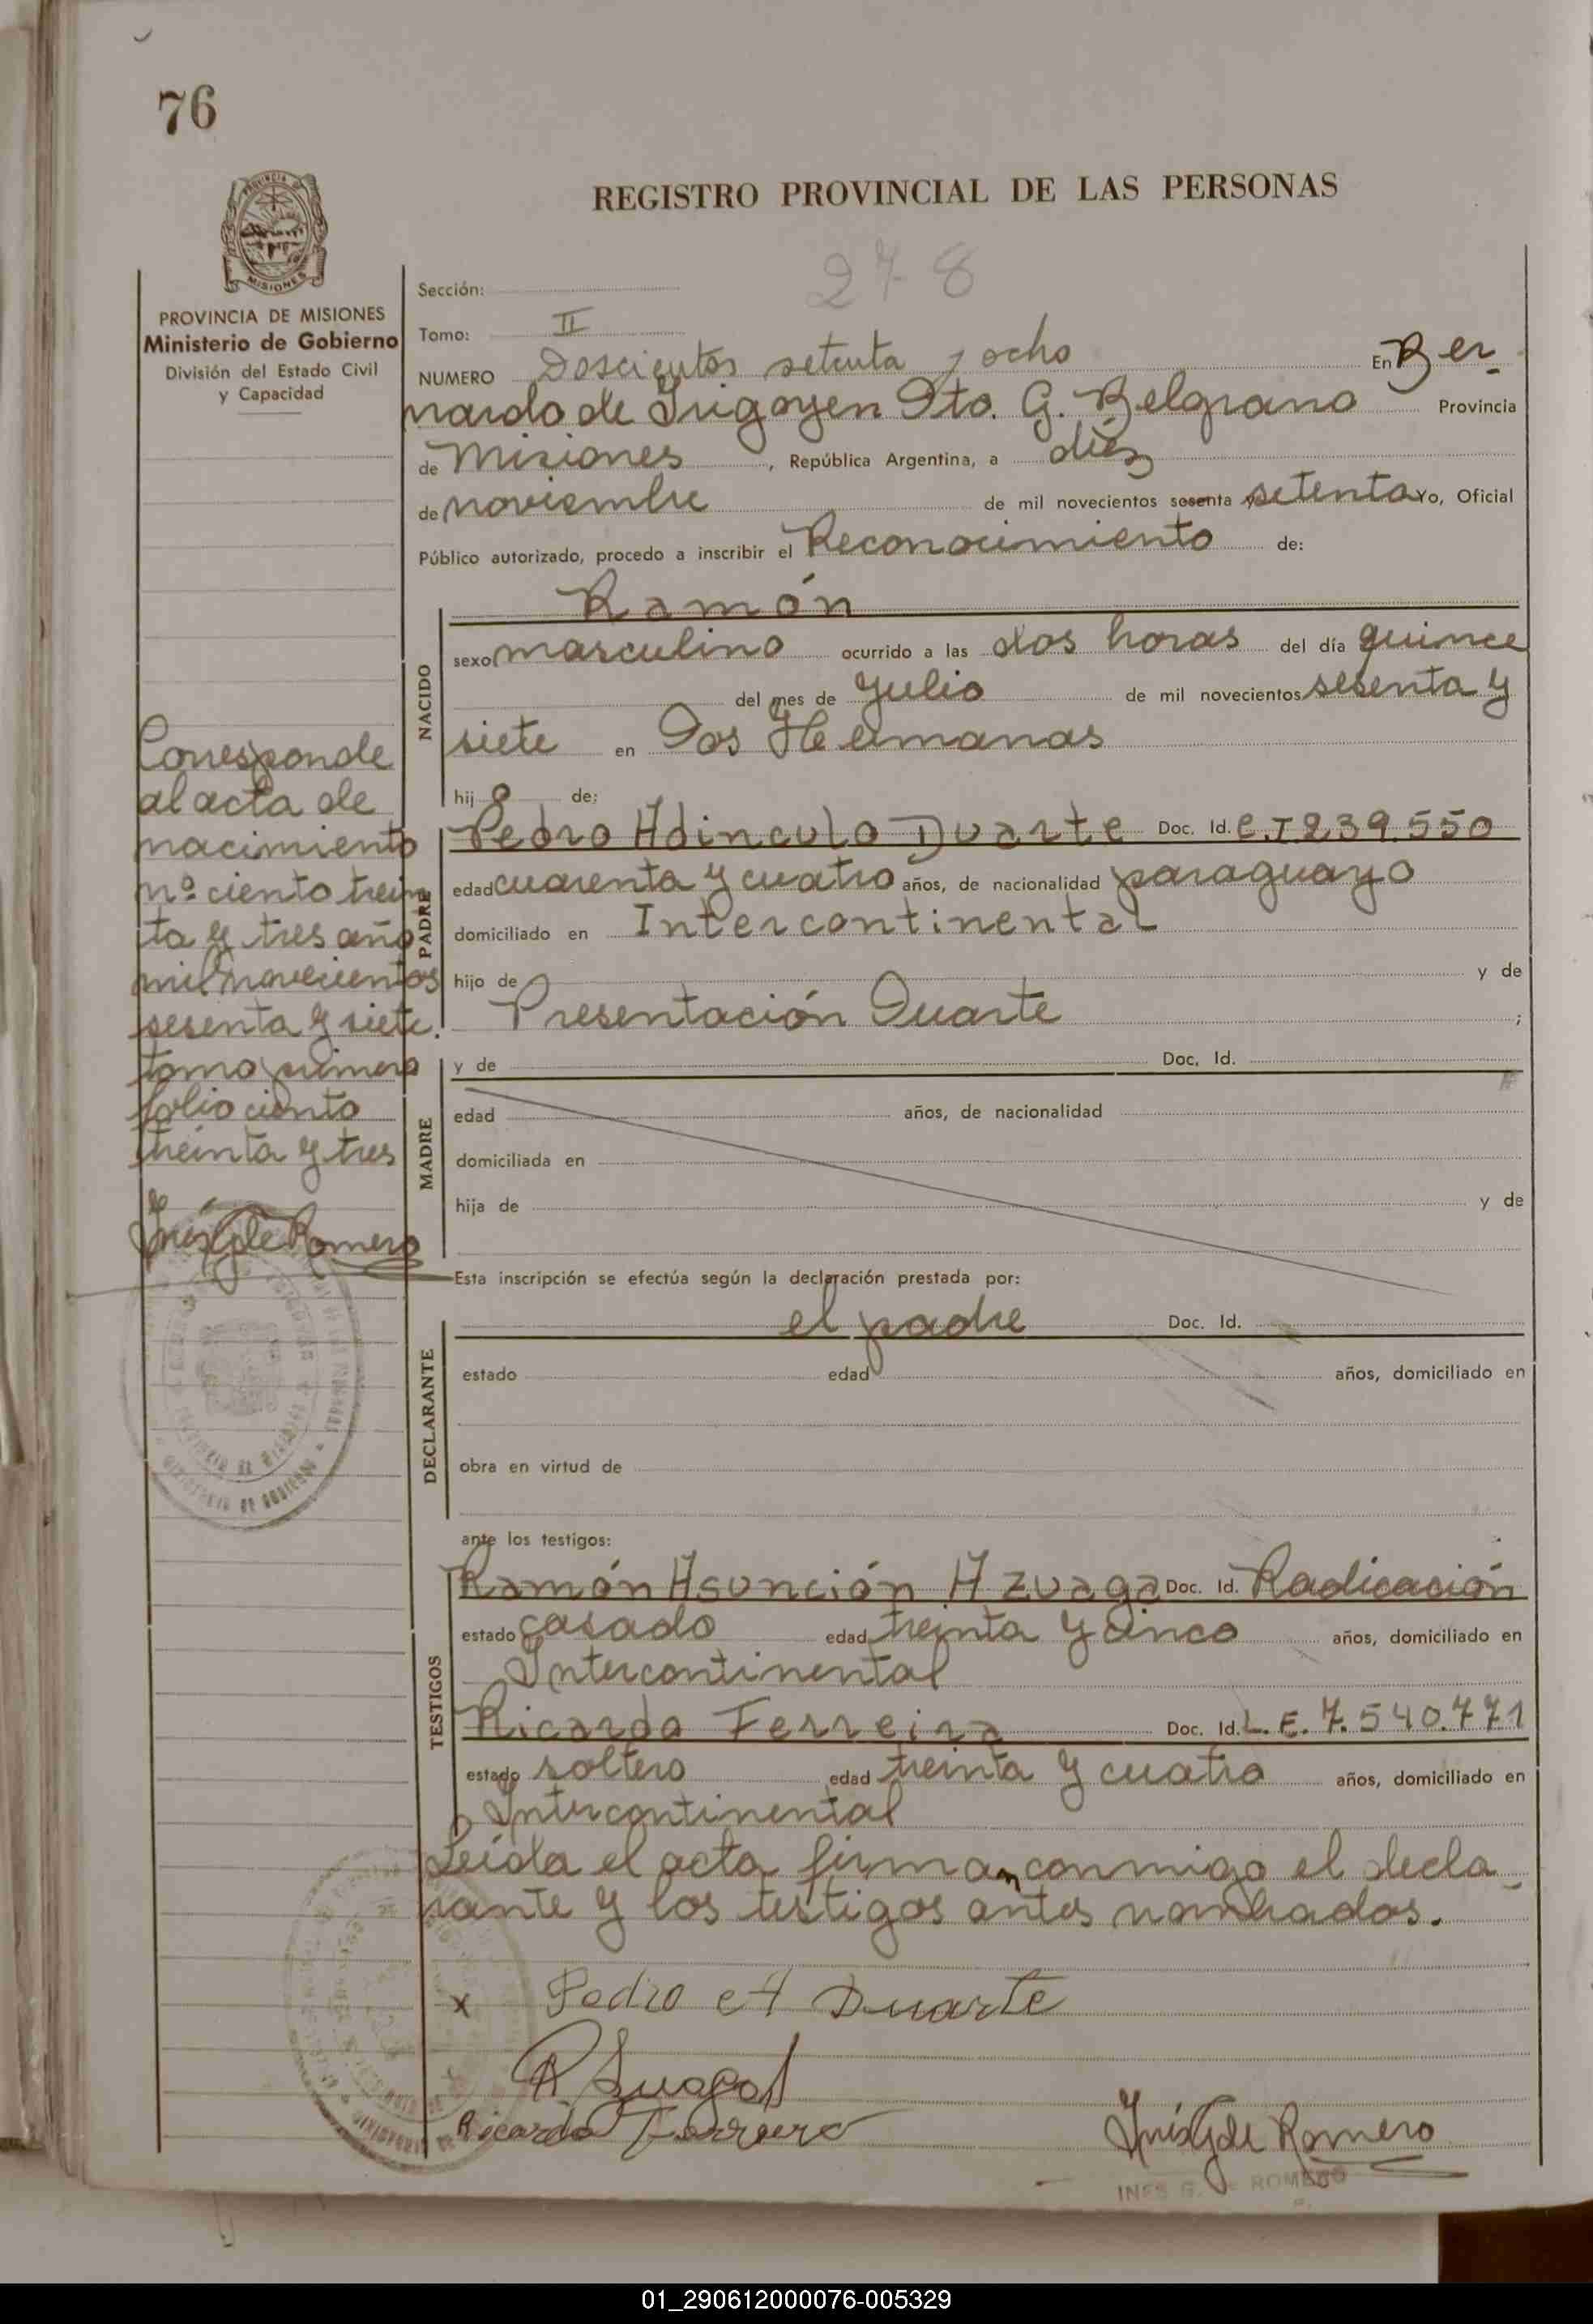 76
REGISTRO PROVINCIAL DE LAS PERSONAS
PROVINCIA DE
MISIONES
PROVINCIA DE MISIONES
Ministerio de Gobierno
División del Estado Civil
y Capacidad
278
Sección:
Tomo: II
NUMERO Doscientos setenta y ocho En Ber
nardo de Irigoyen Dto. G. Belgrano Provincia
de Misiones, República Argentina, a diez
de noviembre de mil novecientos sesenta y setenta Yo, Oficial
Público autorizado, procedo a inscribir el Reconocimiento de:
Ramón
NACIDO
sexo masculino ocurrido a las dos horas del día quince
del mes de Julio de mil novecientos sesenta y
siete en Dos Hermanas
hijo de:
PADRE
Pedro Adinculo Duarte Doc. Id. C.I 239.550
edad cuarenta y cuatro años, de nacionalidad paraguayo
domiciliado en Intercontinental
hijo de y de
Presentación Duarte ;
MADRE
y de Doc. Id.
edad años, de nacionalidad
domiciliada en
hija de y de
Esta inscripción se efectúa según la declaración prestada por:
DECLARANTE
el padre Doc. Id.
estado edad años, domiciliado en
obra en virtud de
ante los testigos:
TESTIGOS
Ramón Asunción Azuaga Doc. Id. Radicación
estado casado edad treinta y cinco años, domiciliado en
Intercontinental
Ricardo Ferreira Doc. Id. L.E. 7.540.771
estado soltero edad treinta y cuatro años, domiciliado en
Intercontinental
Leída el acta firman conmigo el decla
rante y los testigos antes nombrados.
x Pedro A Duarte
Ricardo
Inés G de Romero
INES G. DE ROMERO
Corresponde
al acta de
nacimiento
nº ciento trein
ta y tres año
mil novecientos
sesenta y siete.
tomo primero
folio ciento
treinta y tres
Inés G de Romero
MINISTERIO DE GOBIERNO
01_290612000076-005329